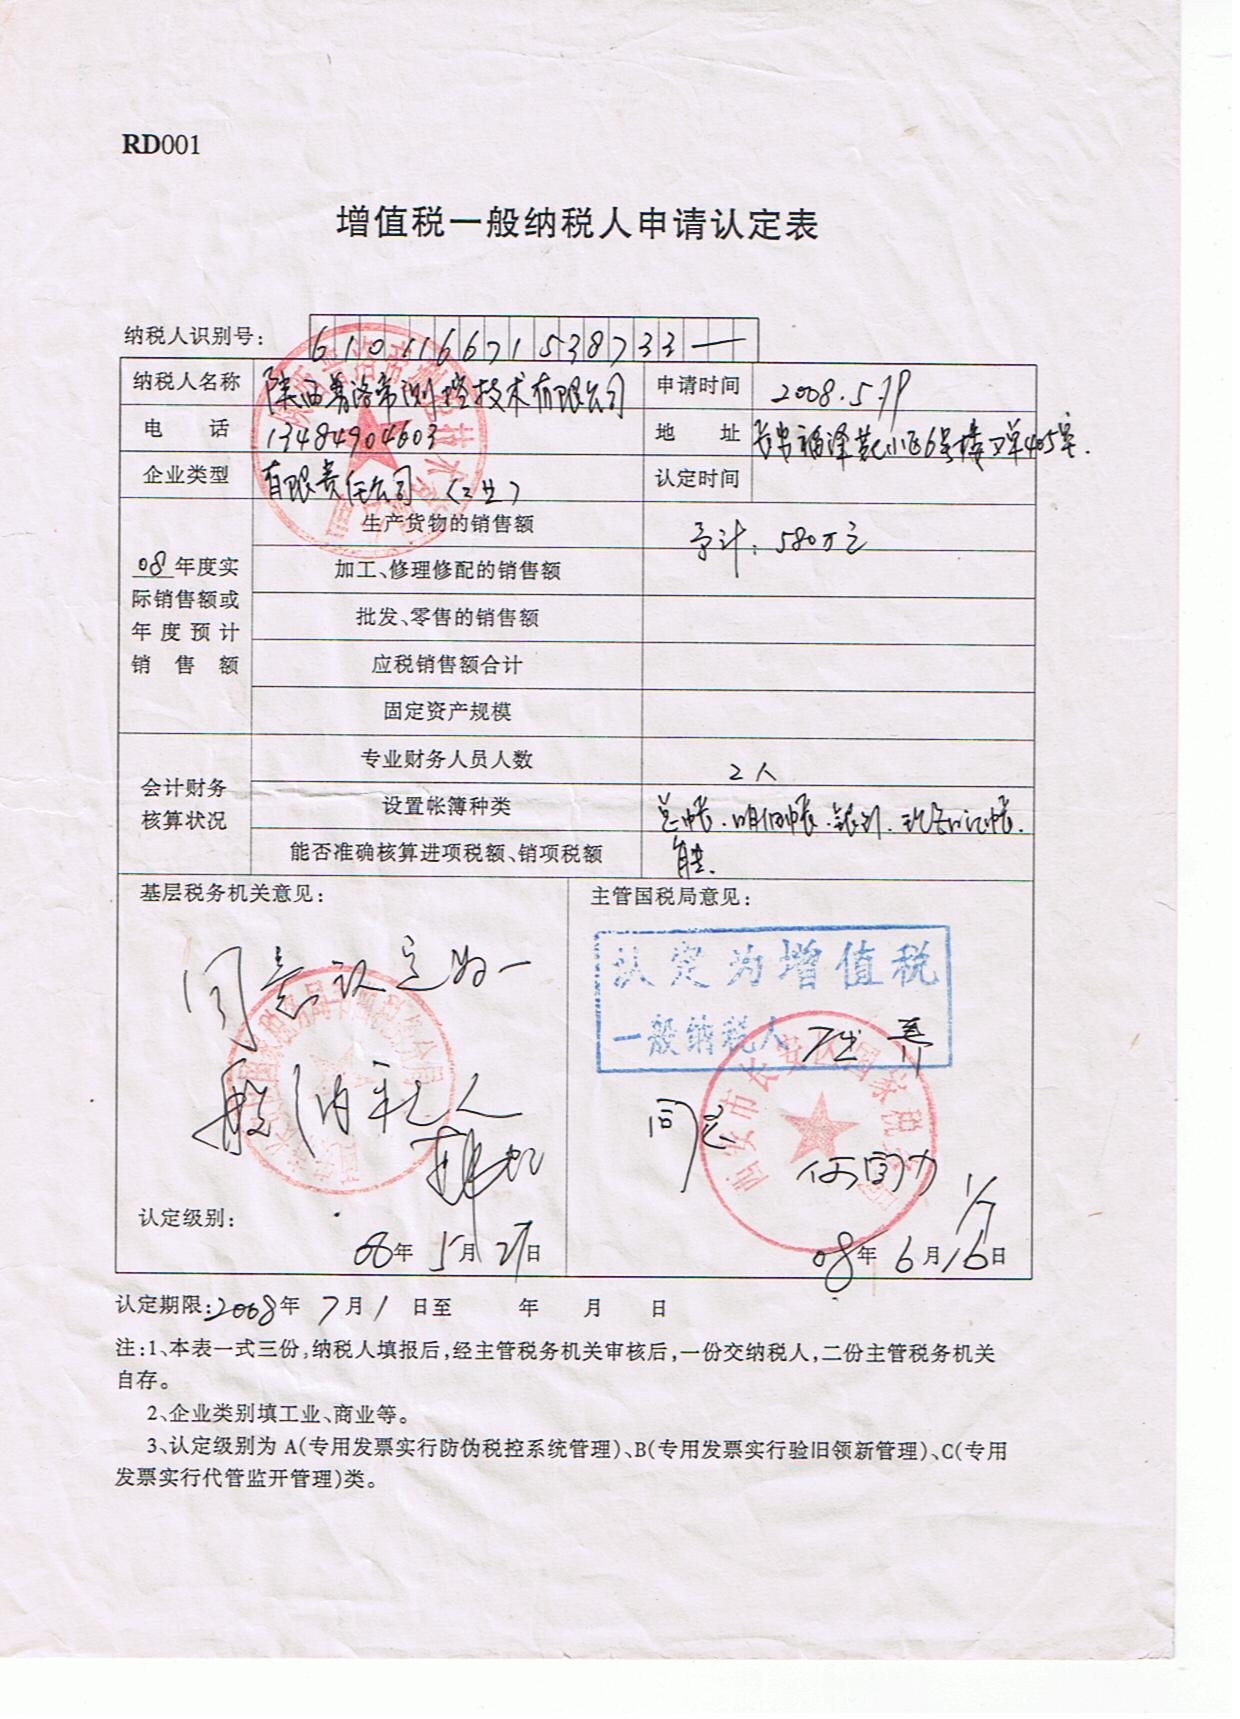 RD001
增值税一般纳税人申请认定表
纳税人识别号: 610116671538733
纳税人名称 陕西普洛帝测控技术有限公司 申请时间 2008.5.19
电 话 13484904603 地 址 6号楼 405室.
企业类型 有限责任公司 (工业) 认定时间
08 年度实际销售额或年度预计销售额
生产货物的销售额 予计: 580万元
加工、修理修配的销售额
批发、零售的销售额
应税销售额合计
固定资产规模
会计财务核算状况
专业财务人员人数 2人
设置帐簿种类 总帐.明细帐.银行.现金日记帐.
能否准确核算进项税额、销项税额 能.
基层税务机关意见: 主管国税局意见:
同意认定为一
般纳税人
认定为增值税
一般纳税人
同意
西安市长安区国家税务局
认定级别:
08年 5月 27日 08年 6月 16日
认定期限: 2008年 7月 1 日至 年 月 日
注:1、本表一式三份,纳税人填报后,经主管税务机关审核后,一份交纳税人,二份主管税务机关
自存。
2、企业类别填工业、商业等。
3、认定级别为 A(专用发票实行防伪税控系统管理)、B(专用发票实行验旧领新管理)、C(专用
发票实行代管监开管理)类。